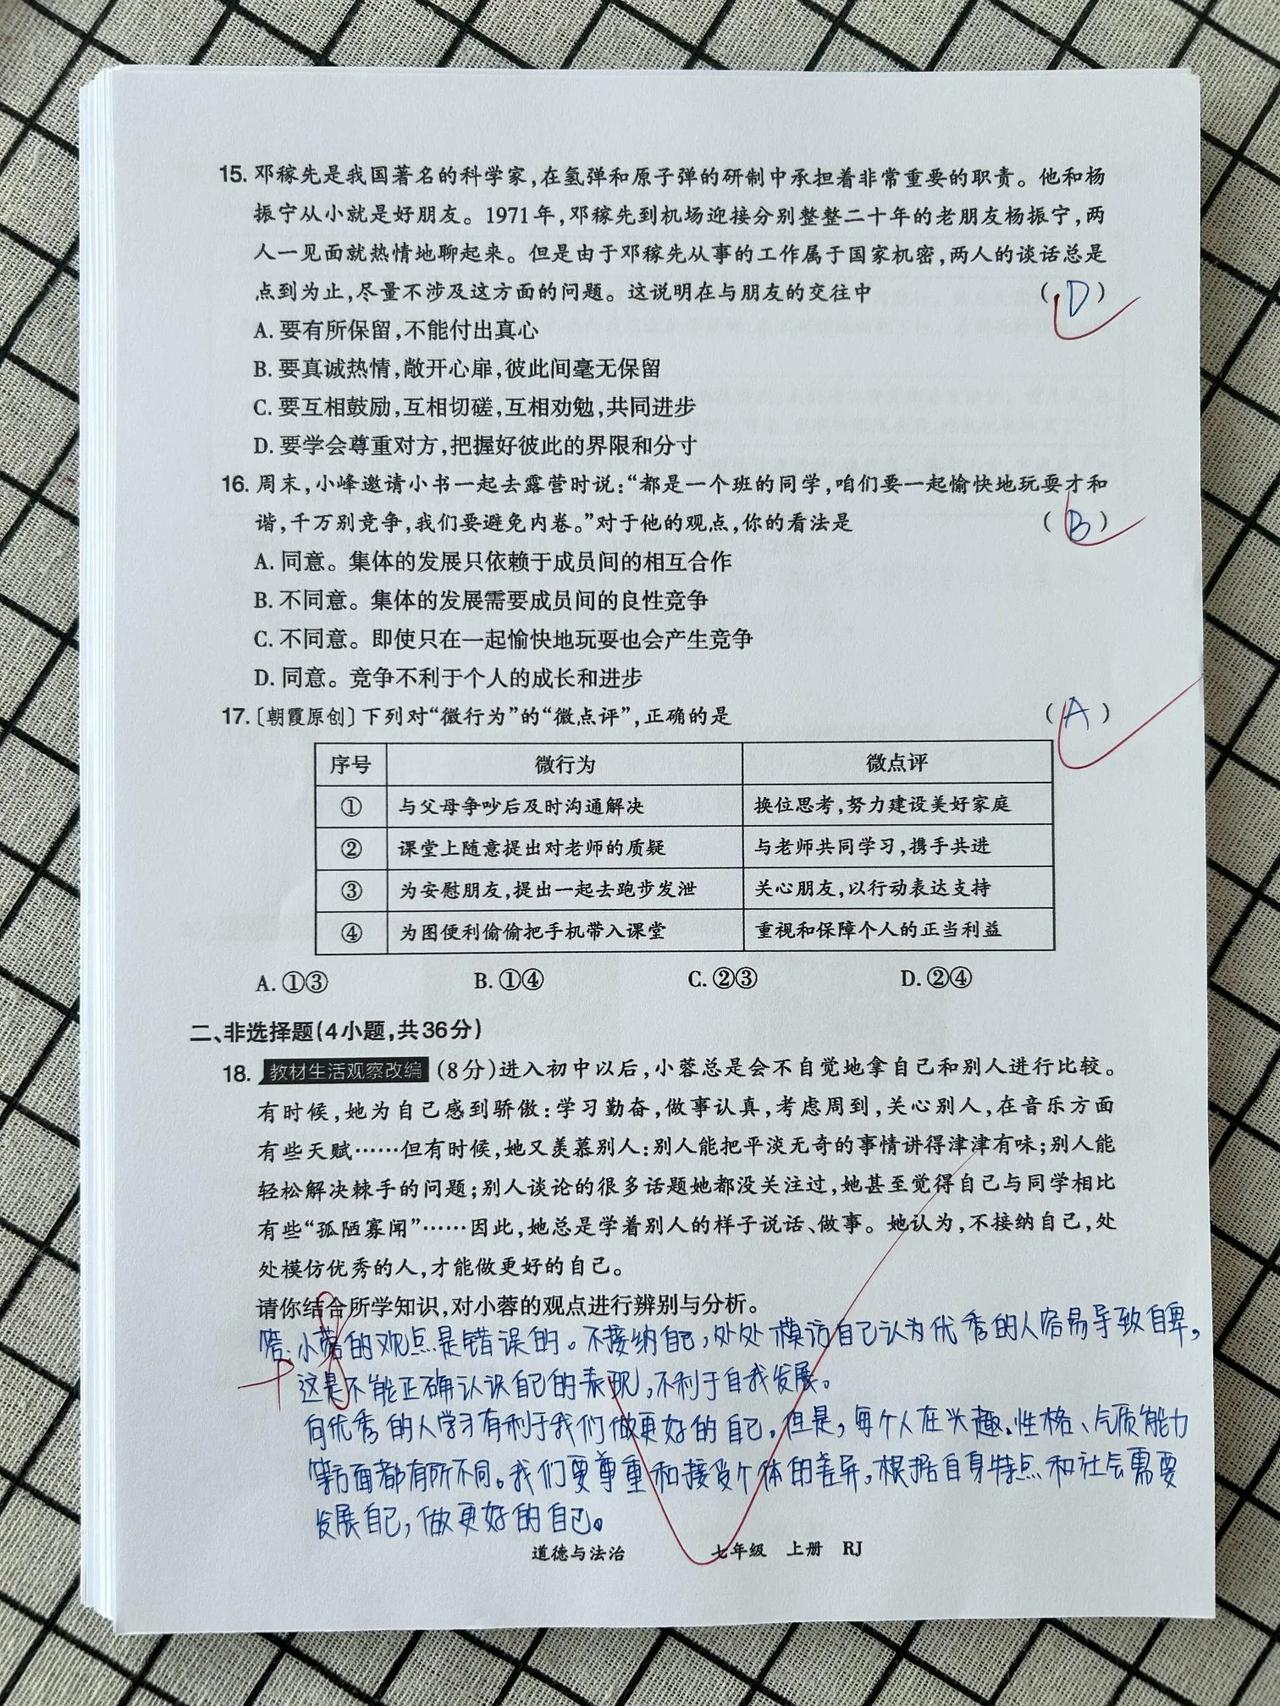 15. 邓稼先是我国著名的科学家,在氢弹和原子弹的研制中承担着非常重要的职责。他和杨
振宁从小就是好朋友。1971年,邓稼先到机场迎接分别整整二十年的老朋友杨振宁,两
人一见面就热情地聊起来。但是由于邓稼先从事的工作属于国家机密,两人的谈话总是
点到为止,尽量不涉及这方面的问题。这说明在与朋友的交往中 ( D )
A. 要有所保留,不能付出真心
B. 要真诚热情,敞开心扉,彼此间毫无保留
C. 要互相鼓励,互相切磋,互相劝勉,共同进步
D. 要学会尊重对方,把握好彼此的界限和分寸
16. 周末,小峰邀请小书一起去露营时说:“都是一个班的同学,咱们要一起愉快地玩耍才和
谐,千万别竞争,我们要避免内卷。”对于他的观点,你的看法是 ( B )
A. 同意。集体的发展只依赖于成员间的相互合作
B. 不同意。集体的发展需要成员间的良性竞争
C. 不同意。即使只在一起愉快地玩耍也会产生竞争
D. 同意。竞争不利于个人的成长和进步
17. 〔朝霞原创〕下列对“微行为”的“微点评”,正确的是 ( A )
序号 微行为 微点评
① 与父母争吵后及时沟通解决 换位思考,努力建设美好家庭
② 课堂上随意提出对老师的质疑 与老师共同学习,携手共进
③ 为安慰朋友,提出一起去跑步发泄 关心朋友,以行动表达支持
④ 为图便利偷偷把手机带入课堂 重视和保障个人的正当利益
A. ①③ B. ①④ C. ②③ D. ②④
二、非选择题(4小题,共36分)
18. 教材生活观察改编 (8分)进入初中以后,小蓉总是会不自觉地拿自己和别人进行比较。
有时候,她为自己感到骄傲:学习勤奋,做事认真,考虑周到,关心别人,在音乐方面
有些天赋……但有时候,她又羡慕别人:别人能把平淡无奇的事情讲得津津有味;别人能
轻松解决棘手的问题;别人谈论的很多话题她都没关注过,她甚至觉得自己与同学相比
有些“孤陋寡闻”……因此,她总是学着别人的样子说话、做事。她认为,不接纳自己,处
处模仿优秀的人,才能做更好的自己。
请你结合所学知识,对小蓉的观点进行辨别与分析。
答:小蓉的观点是错误的。不接纳自己,处处模仿自己认为优秀的人容易导致自卑,
这是不能正确认识自己的表现,不利于自我发展。
向优秀的人学习有利于我们做更好的自己。但是,每个人在兴趣、性格、气质能力
等方面都有所不同。我们要尊重和接受个体的差异,根据自身特点和社会需要
发展自己,做更好的自己。
道德与法治 七年级 上册 RJ